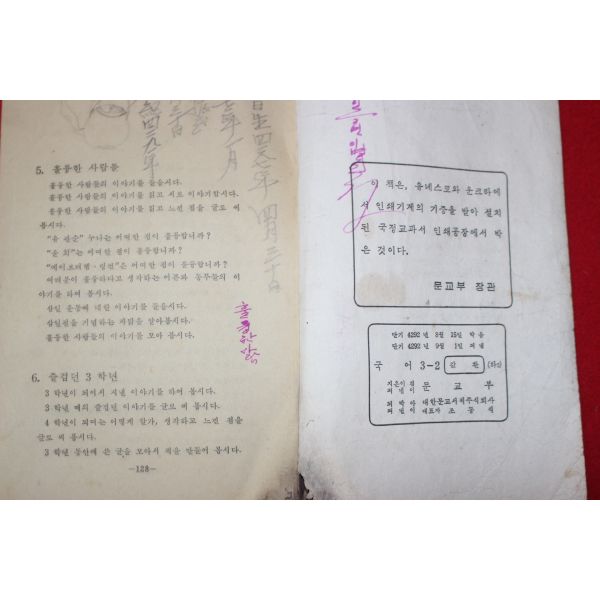 5. 훌륭한 사람들
훌륭한 사람들의 이야기를 들읍시다.
훌륭한 사람들의 이야기를 읽고 서로 이야기합시다.
훌륭한 사람들의 이야기를 읽고 느낀 점을 글로 써
봅시다.
"유 관순" 누나는 어떠한 점이 훌륭합니까?
"윤 회"는 어떠한 점이 훌륭합니까?
"에이브러햄·링컨"은 어떠한 점이 훌륭합니까?
여러분이 훌륭하다고 생각하는 어른과 동무들의 이
야기를 하여 봅시다.
삼일 운동에 대한 이야기를 들읍시다.
삼일절을 기념하는 까닭을 알아봅시다.
훌륭한 사람들의 이야기를 모아 봅시다.
6. 즐겁던 3 학년
3 학년이 되어서 지낸 이야기를 하여 봅시다.
3 학년 때의 즐겁던 이야기를 글로 써 봅시다.
4 학년이 되며는 어떻게 할가, 생각하고 느낀 점을
글로 써 봅시다.
3 학년 동안에 쓴 글을 모아서 책을 만들어 봅시다.
—128—
이 책은, 유네스코와 운크라에
서 인쇄기계의 기증을 받아 설치
된 국정교과서 인쇄공장에서 박
은 것이다.
문교부 장관
단기 4292 년 8월 15일 박음
단기 4292 년 9월 1일 펴냄
국 어 3-2
지은이 겸
펴낸이 문 교 부
대한문교서적주식회사
대표자